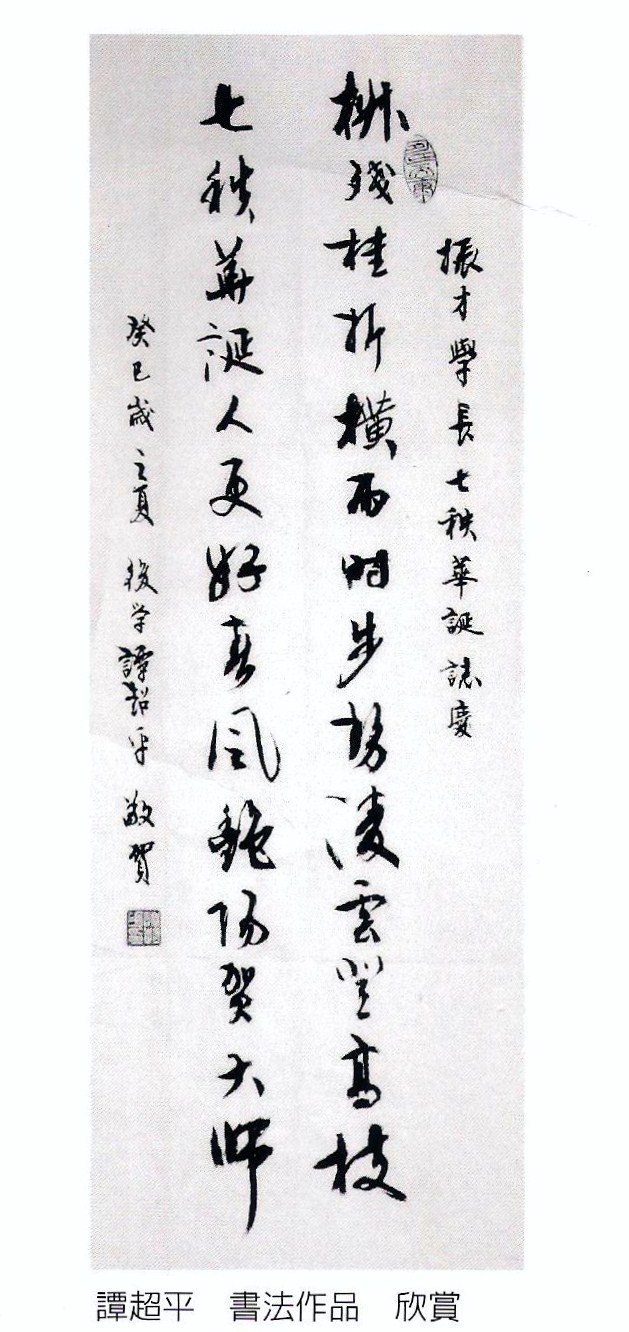 振才學長七秩華誕誌慶
殘桂折橫雨時步凌雲登高枝
七秩華誕人更好春風艷陽賀大師
癸巳歲之夏 後学譚超平 敬賀
譚超平 書法作品 欣賞